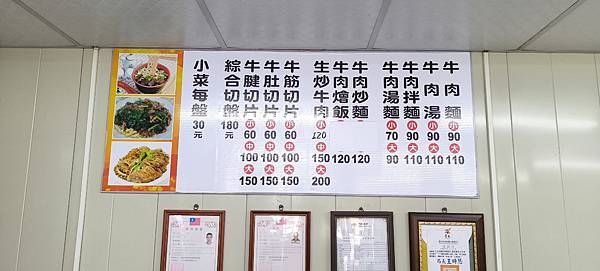 牛肉麵 小 90 大 110
牛肉湯 小 90 大 110
牛肉拌麵 小 90 大 110
牛肉湯麵 小 70 大 90
牛肉炒麵 120
牛肉燴飯 120
生炒牛肉 小 120 中 150 大 200
牛筋切片 小 60 中 100 大 150
牛肚切片 小 60 中 100 大 150
牛腱切片 小 60 中 100 大 150
綜合切盤 180元
小菜每盤 30元